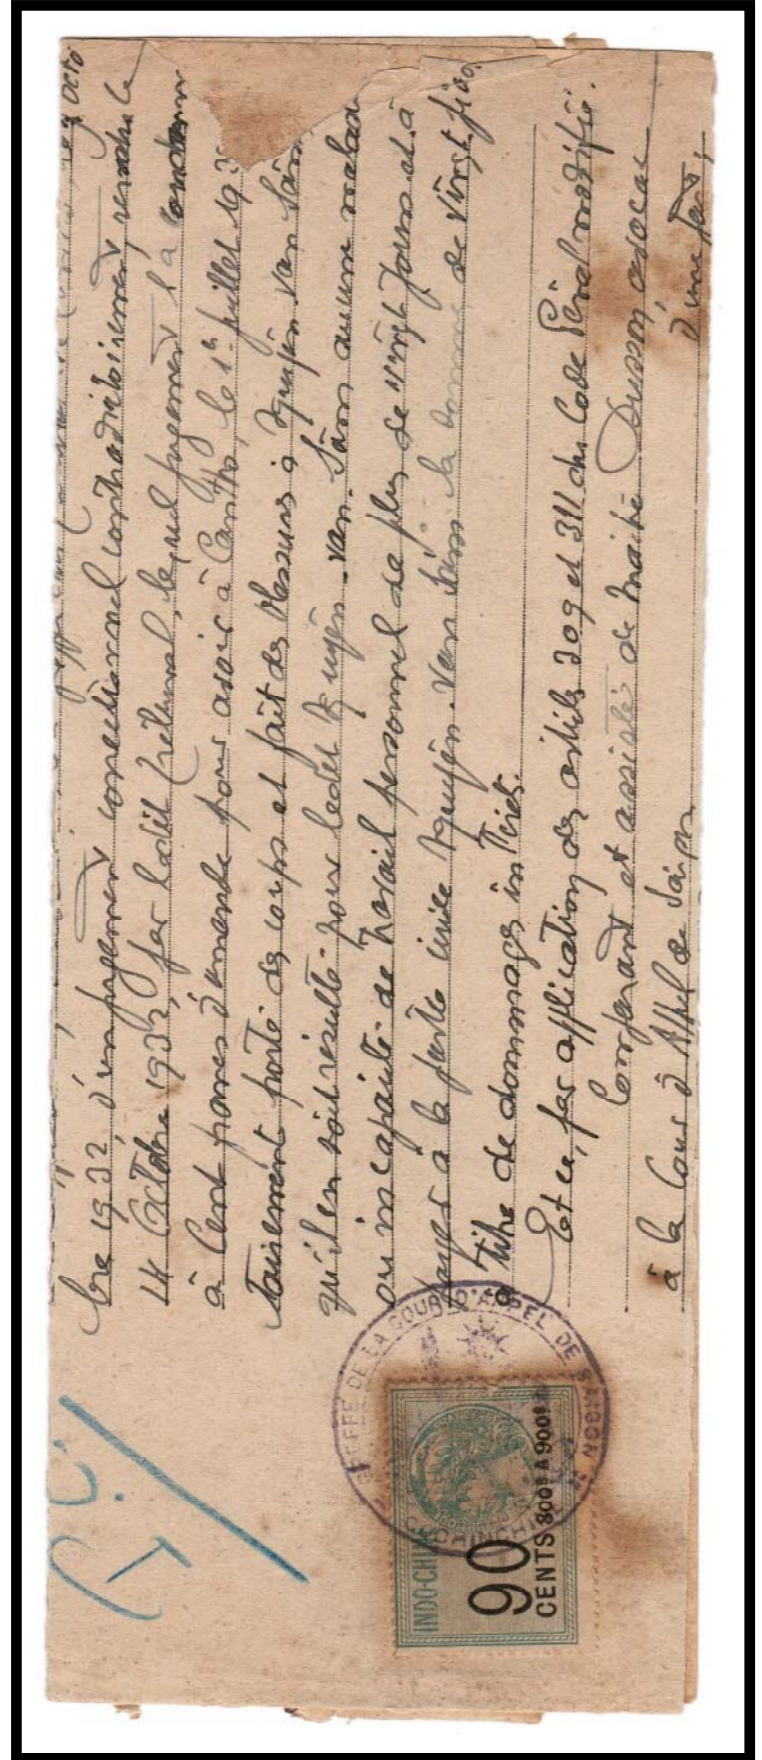 bre 1932, d'un jugement correctionnel contradictoirement rendu le
14 Octobre 1932, par ledit Tribunal, lequel jugement l'a condamn
à Cent francs d'amende pour avoir à Cantho, le 1er juillet 193
volontairement porté des coups et fait des blessures à Nguyên Van Sâm
qu'il en soit résulté pour ledit Nguyên Van Sâm aucune malad
ou incapacité de travail personnel de plus de vingt jours et à
payer à la partie civile Nguyên Van Sâm la somme de vingt
à titre de dommages intérêts.
Et ce, par application des articles 309 et 311 du Code Pénal modifié.
Comparant et assisté de Maitre avocat
à la Cour d'Appel de Saigon
d'une part;
GREFFE DE LA COUR D'APPEL DE SAIGON
COCHINCHINE
INDO-CHINE
90
CENTS 800$ A 900$